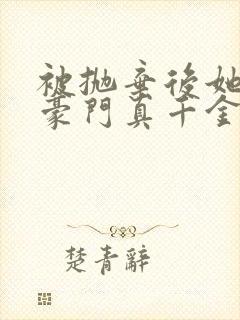 被拋棄後她
豪門真千金
楚青辭